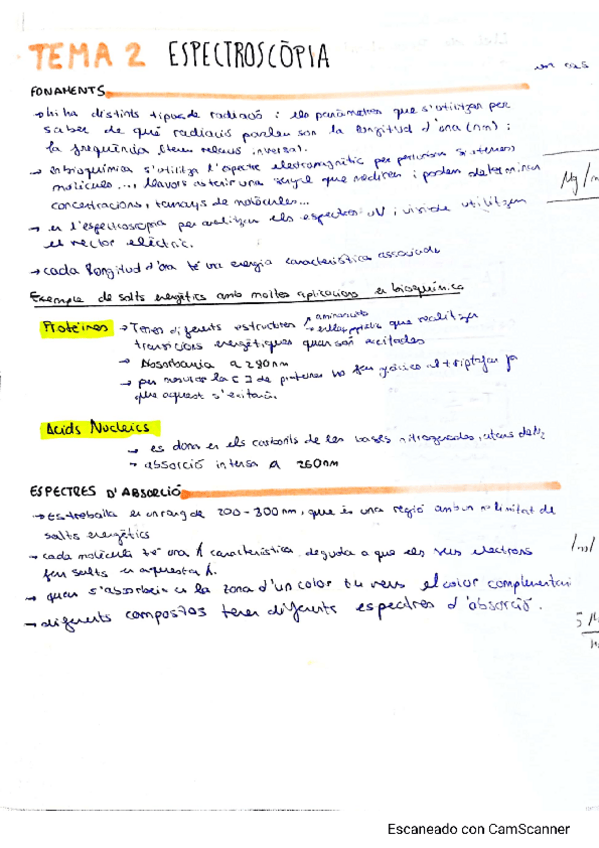 TEMA 2 ESPECTROSCÒPIA
FONAMENTS
→ hi ha distints tipus de radiació i els paràmetres que s'utilitzen per
saber de què radiació parlem son la longitud d'ona (nm) i
la freqüència (tenen relació inversa).
→ en bioquímica s'utilitza l'espectre electromagnètic per
molècules..., llavors una senyal que medirem i podem determinar
concentracions, tamanys de molècules...
→ en l'espectroscopia per analitzar els espectres UV i visible utilitzem
el vector elèctric.
→ cada longitud d'ona té una energia característica associada
Exemple de salts energètics amb moltes aplicacions en bioquímica
Proteïnes → Tenen diferents estructures aminoàcids
que realitzen
transicions energètiques quan són excitades
→ Absorbància a 280nm
→ per mesurar la [ ] de proteïnes ho fem gràcies al triptofan ja
que aquest s'excitarà.
Àcids Nucleics
→ es dona en els de les bases nitrogenades,
→ absorció intensa a 260nm
ESPECTRES D'ABSORCIÓ
→ Es treballa en un rang de 200-300nm, que és una regió amb un nº limitat de
salts energètics
→ cada molècula té una λ característica, deguda a que els seus electrons
fan salts en aquesta λ.
→ quan s'absorbeix en la zona d'un color tu veus el color complementari
→ diferents compostos tenen diferents espectres d'absorció.
Escaneado con CamScanner